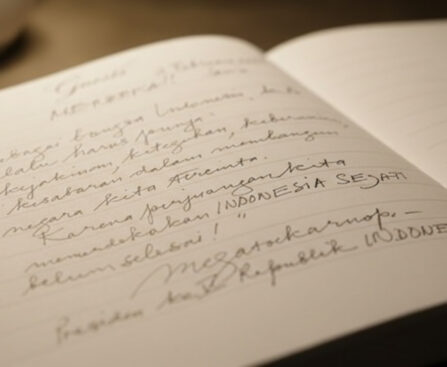 MERDEKA!!
sebagai bangsa Indonesia, kita
selalu harus punya
keyakinan, keteguhan, keberanian,
kesabaran dalam membangun
negara kita tercinta.
Karena perjuangan kita
memerdekakan INDONESIA SEJATI
belum selesai! "
Megatsekarnop. -
Presiden ke V Republik INDONE